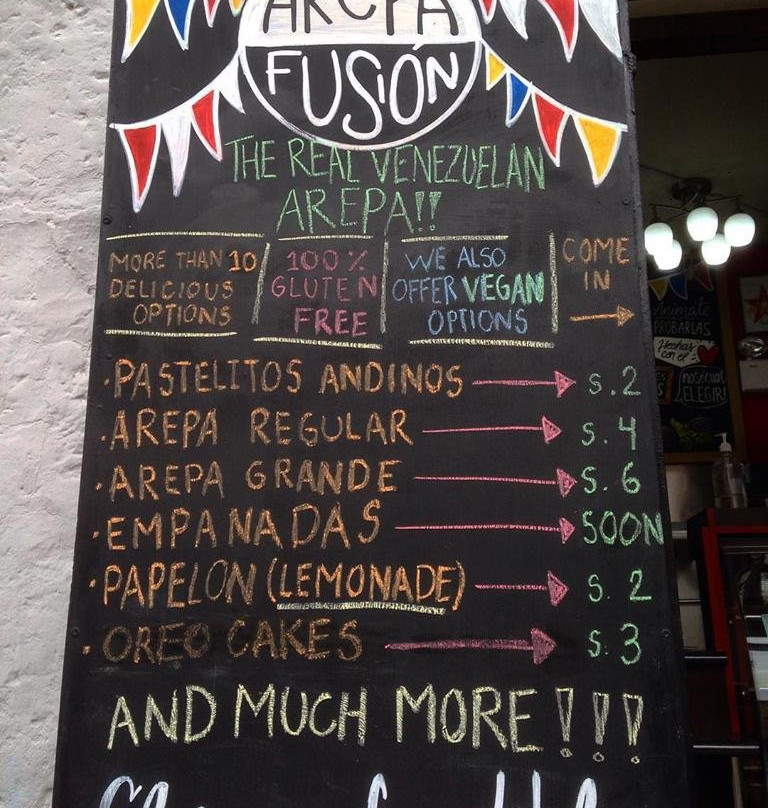 AREPA
FUSIÓN
THE REAL VENEZUELAN
AREPA!!
MORE THAN 10
DELICIOUS
OPTIONS
100%
GLUTEN
FREE
WE ALSO
OFFER VEGAN
OPTIONS
COME
IN
· PASTELITOS ANDINOS S. 2
· AREPA REGULAR S. 4
· AREPA GRANDE S. 6
· EMPANADAS SOON
· PAPELON (LEMONADE) S. 2
· OREO CAKES S. 3
AND MUCH MORE!!!
Anímate
PROBARLAS
Hechas
con el
ELEGIR!